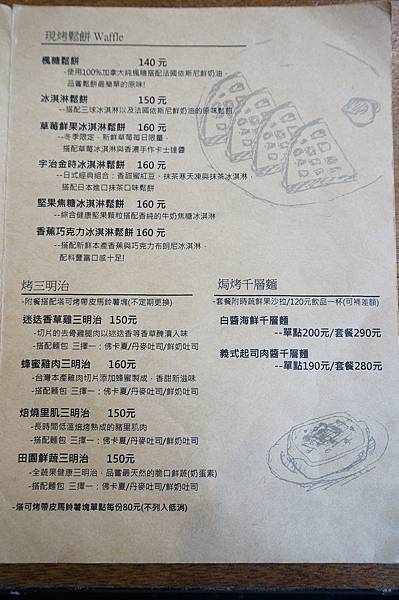 現烤鬆餅 Waffle
楓糖鬆餅 140 元
-使用100%加拿大純楓糖搭配法國依斯尼鮮奶油，
品嘗鬆餅最簡單的原味!
冰淇淋鬆餅 150 元
--搭配三球冰淇淋以及法國依斯尼鮮奶油的原味鬆餅
草莓鮮果冰淇淋鬆餅 160 元
--冬季限定，新鮮草莓每日限量，
搭配草莓冰淇淋與香濃手作卡士達醬
宇治金時冰淇淋鬆餅 160 元
--日式經典組合：香甜蜜紅豆，抹茶寒天凍與抹茶冰淇淋
搭配日本進口抹茶口味鬆餅
堅果焦糖冰淇淋鬆餅 160 元
--綜合健康堅果顆粒搭配香純的牛奶焦糖冰淇淋
香蕉巧克力冰淇淋鬆餅 160 元
--搭配新鮮本產香蕉與巧克力布朗尼冰淇淋，
配料豐富口感十足!
烤三明治
-附餐搭配塔可烤帶皮馬鈴薯塊(不定期更換)
迷迭香草雞三明治 150元
-切片的去骨雞腿肉以迷迭香等香草醃漬入味
-搭配麵包 三擇一：佛卡夏/丹麥吐司/鮮奶吐司
蜂蜜雞肉三明治 160元
-台灣本產雞肉切片添加蜂蜜製成，香甜新滋味
-搭配麵包 三擇一：佛卡夏/丹麥吐司/鮮奶吐司
焙燒里肌三明治 150元
-長時間低溫焙烤熟成的豬里肌肉
-搭配麵包 三擇一：佛卡夏/丹麥吐司/鮮奶吐司
田園鮮蔬三明治 150元
-全蔬果健康三明治，品嘗最天然的脆口鮮蔬(奶蛋素)
-搭配麵包 三擇一：佛卡夏/丹麥吐司/鮮奶吐司
-塔可烤帶皮馬鈴薯塊單點每份80元(不列入低消)
焗烤千層麵
-套餐附時蔬鮮果沙拉/120元飲品一杯(可補差額)
白醬海鮮千層麵
--單點200元/套餐290元
義式起司肉醬千層麵
--單點190元/套餐280元